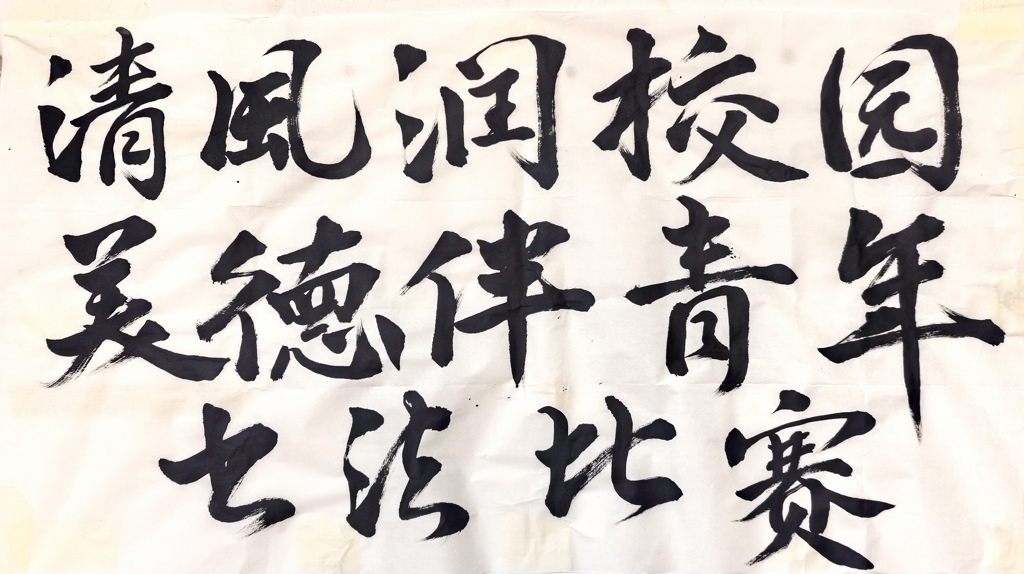 清風润校园
美德伴青年
书法比赛